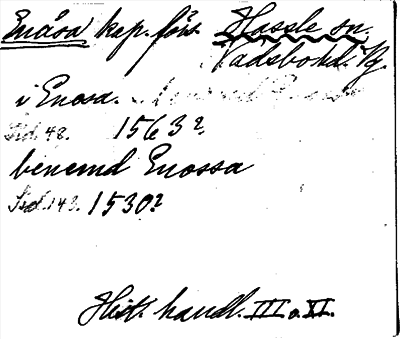 Enåsa kap. förs. Hassle sn.
Vadsbo hd. Vg.
i Enosa.
Sid. 48. 1563?
benemd Enossa
Sid. 143. 1530?
Hist. handl. III o. XI.